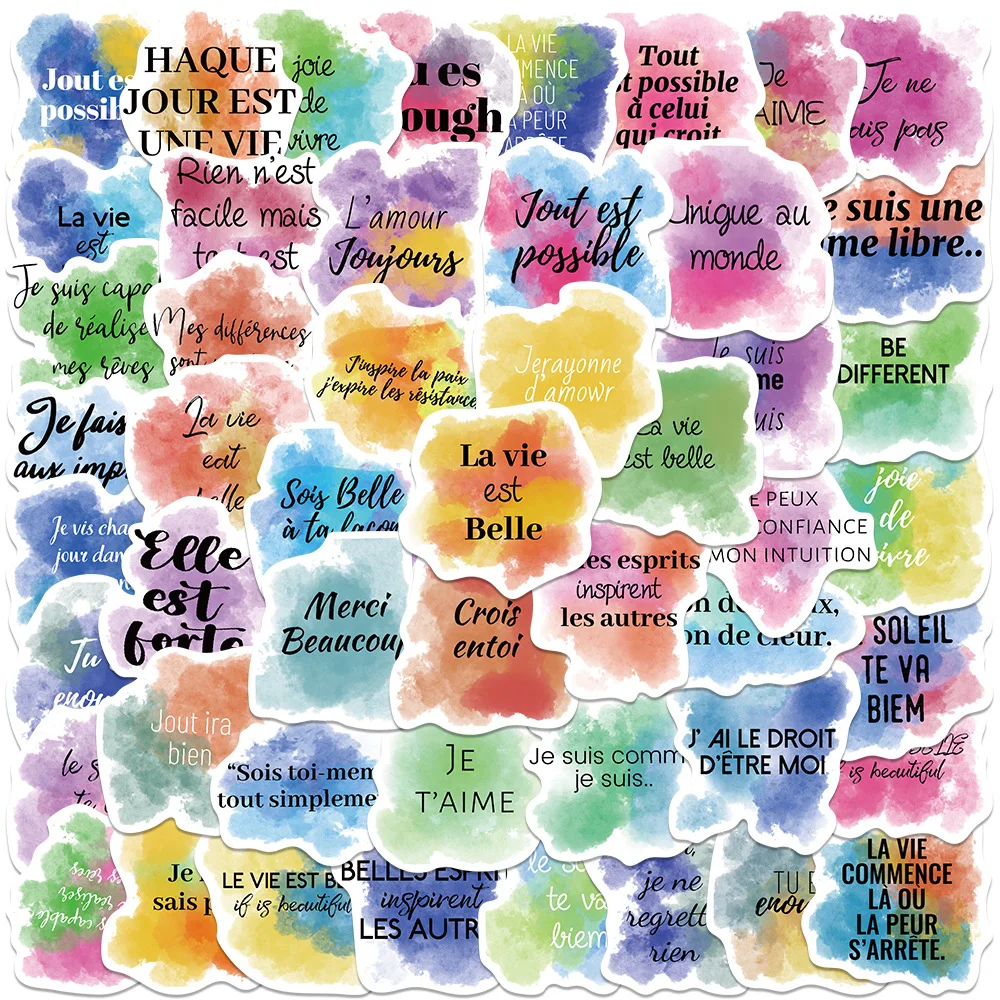 Jout es
possib
HAQUE
JOUR EST
UNE VIE
joie
de
vivre
u es
ough
LA VIE
MENCE
À OÙ
A PEUR
ARRÊTE
Tout
t possible
à celui
qui croit
Je
AIME
Je ne
ais pas
La vie
est
Rien n'est
facile mais
tout est
L'amour
Joujours
Jout est
possible
Unigue au
monde
e suis une
me libre..
Je suis capa
de réalise
mes rêves
Mes différences
sont
J'inspire la paix
j'expire les résistance
Jerayonne
d'amowr
Je suis
me
uis
BE
DIFFERENT
Je fais
aux imp
La vie
eat
belle
Sois Belle
à ta façon
La vie
est
Belle
La vie
est belle
E PEUX
CONFIANCE
MON INTUITION
joie
de
vivre
Je vis cha
jour dan
Elle
est
forte
Merci
Beaucoup
Crois
entoi
les esprits
inspirent
les autres
on de
ix,
on de cœur.
SOLEIL
TE VA
BIEM
Tu
enou
Jout ira
bien
le s
te
"Sois toi-mem
tout simpleme
JE
T'AIME
Je suis comm
je suis..
J' AI LE DROIT
D'ÊTRE MOI
is beautiful
s capable
réaliser
es rêves
Je
sais p
LE VIE EST B
if is beautiful
BELLES ESPRI
inspirent
LES AUTR
le so
te va
biem
je ne
regrett
rien
TU E
enou
LA VIE
COMMENCE
LÀ OÙ
LA PEUR
S'ARRÊTE.